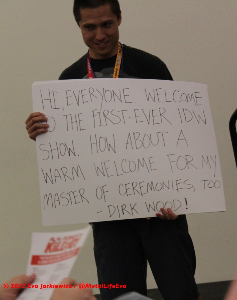 HI, EVERYONE WELCOME
TO THE FIRST-EVER IDW
SHOW. HOW ABOUT A
WARM WELCOME FOR MY
MASTER OF CEREMONIES, TOO
- DIRK WOOD!